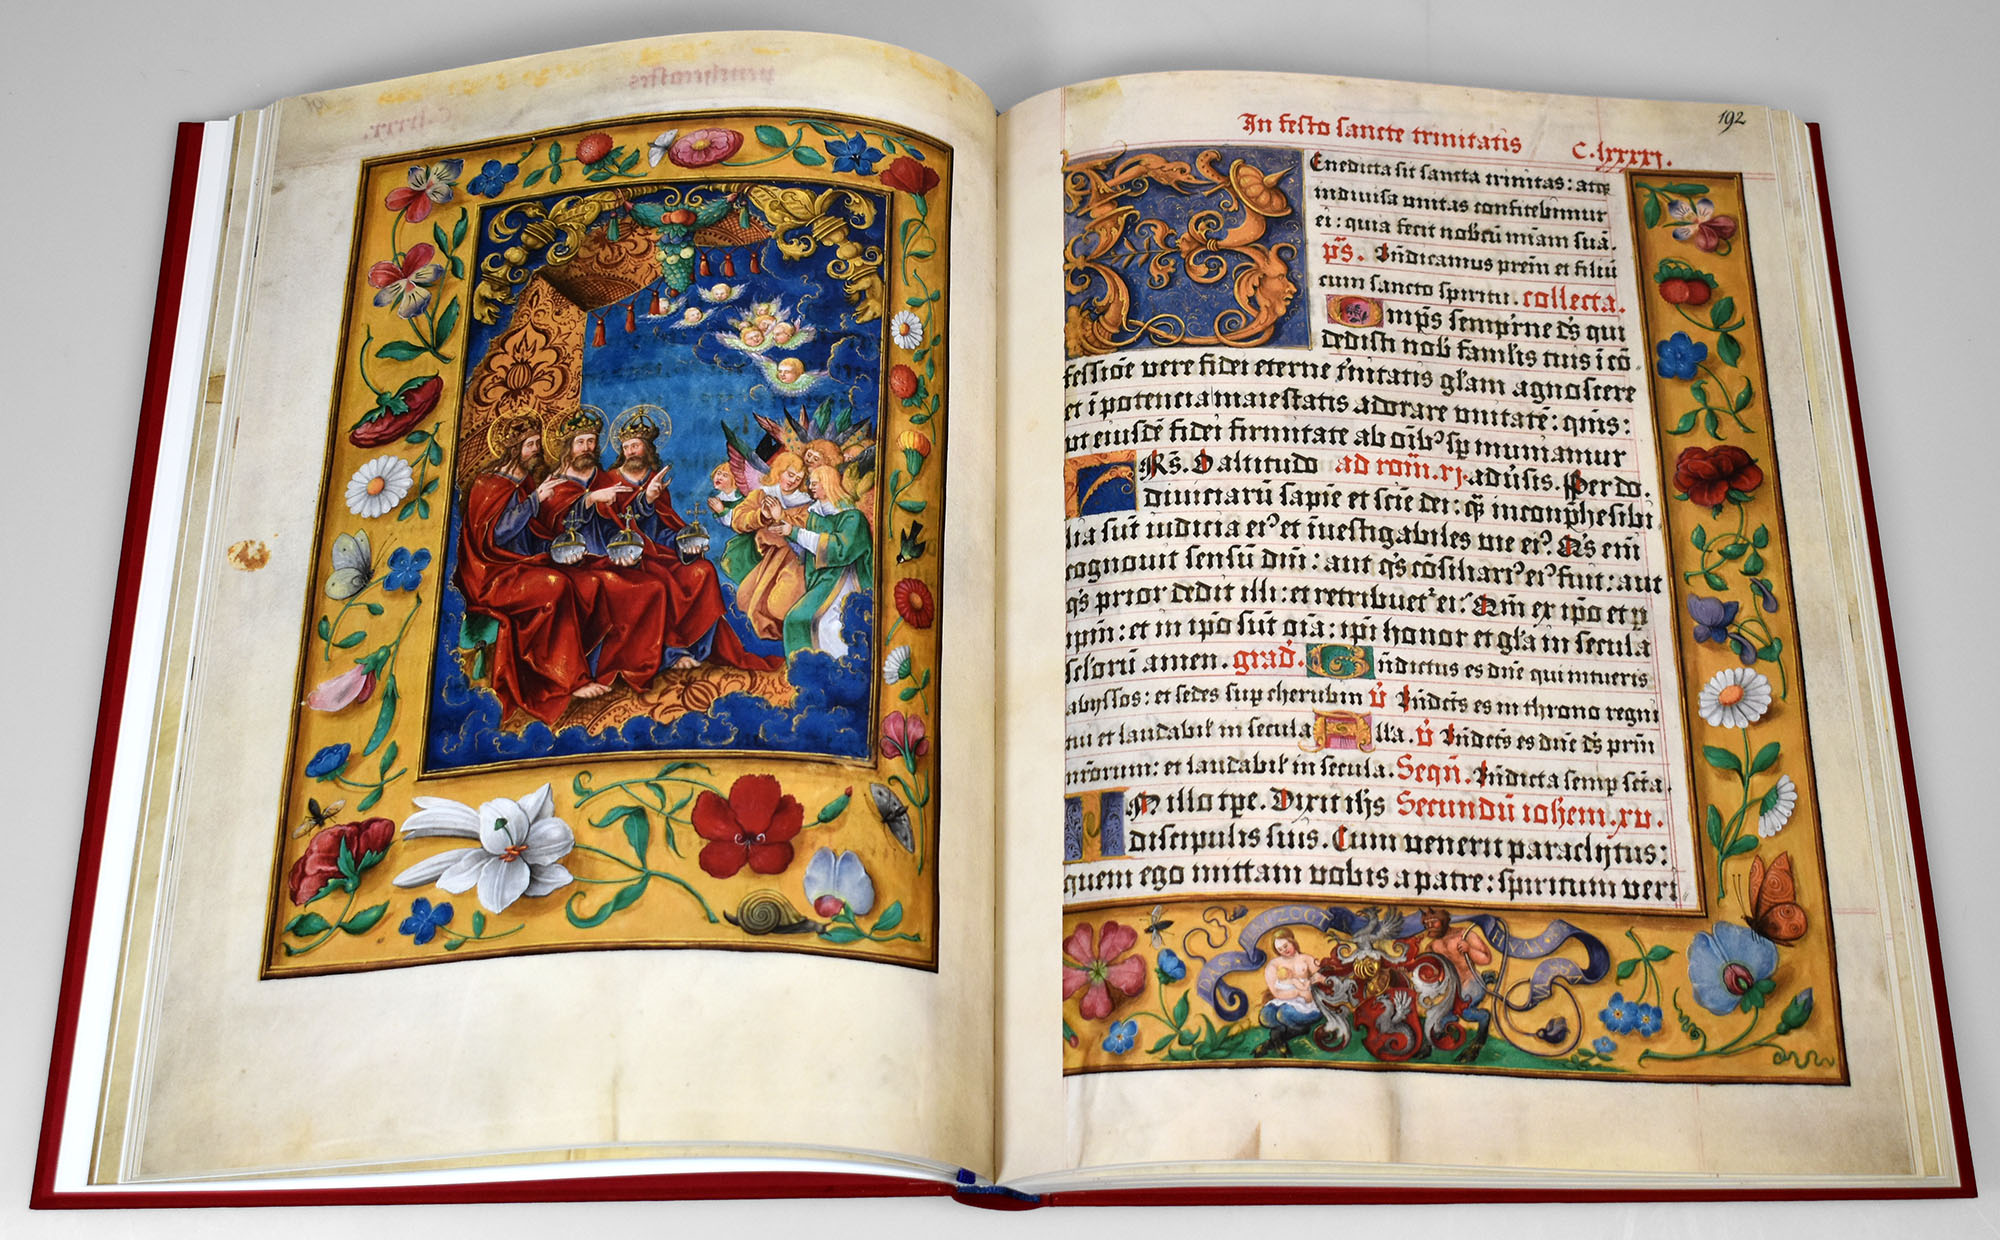 In festo sancte trinitatis C.lxxxxj.
192
Benedicta sit sancta trinitas: atqꝫ
indiuisa vnitas confitebimur
ei: quia fecit nobcũ miam suã.
p̃s. Bñdicamus prem et filiũ
cum sancto spiritu. collecta.
Omp̃s sempirne ds qui
dedisti nob famlis tuis ĩ cõ
fessiõe vere fidei eterne tñitatis glam agnoscere
et ĩ potencia maiestatis adorare vnitatẽ: q̃s:
vt eiusdẽ fidei firmitate ab oĩbꝰ sꝑ muniamur
FRs̃. O altitudo ad rom̃.xj. aduisis. Per do.
diuiciarũ sapie et scie dei: q̃ inconp̃hesibi
lia sũt iudicia eiꝰ et ĩuestigabiles vie eiꝰ. Qs eni
cognouit sensũ dñi: aut qs cõsiliariꝰ eiꝰ fuit: aut
qs prior dedit illi: et retribuet ei. Qm̃ ex ip̃o et ꝑ
ip̃m: et in ip̃o sũt oĩa: ip̃i honor et gl̃a in secula
sclorũ amen. grad. Bñdictus es dñe qui intueris
abyssos: et sedes suꝑ cherubin v̉ Bñdict̃s es in throno regni
tui et laudabil̕ in secula Alla. v̉ Bñdict̃s es dñe ds prim
nr̃orum: et laudabil̕ in secula. Seqñ. Bñdicta semp sc̃ta.
IN illo tꝑe. Dixit ih̃s Secundũ iohem.xv.
discipulis suis. Cum venerit paraclytus:
quem ego mittam vobis a patre: spiritum veri